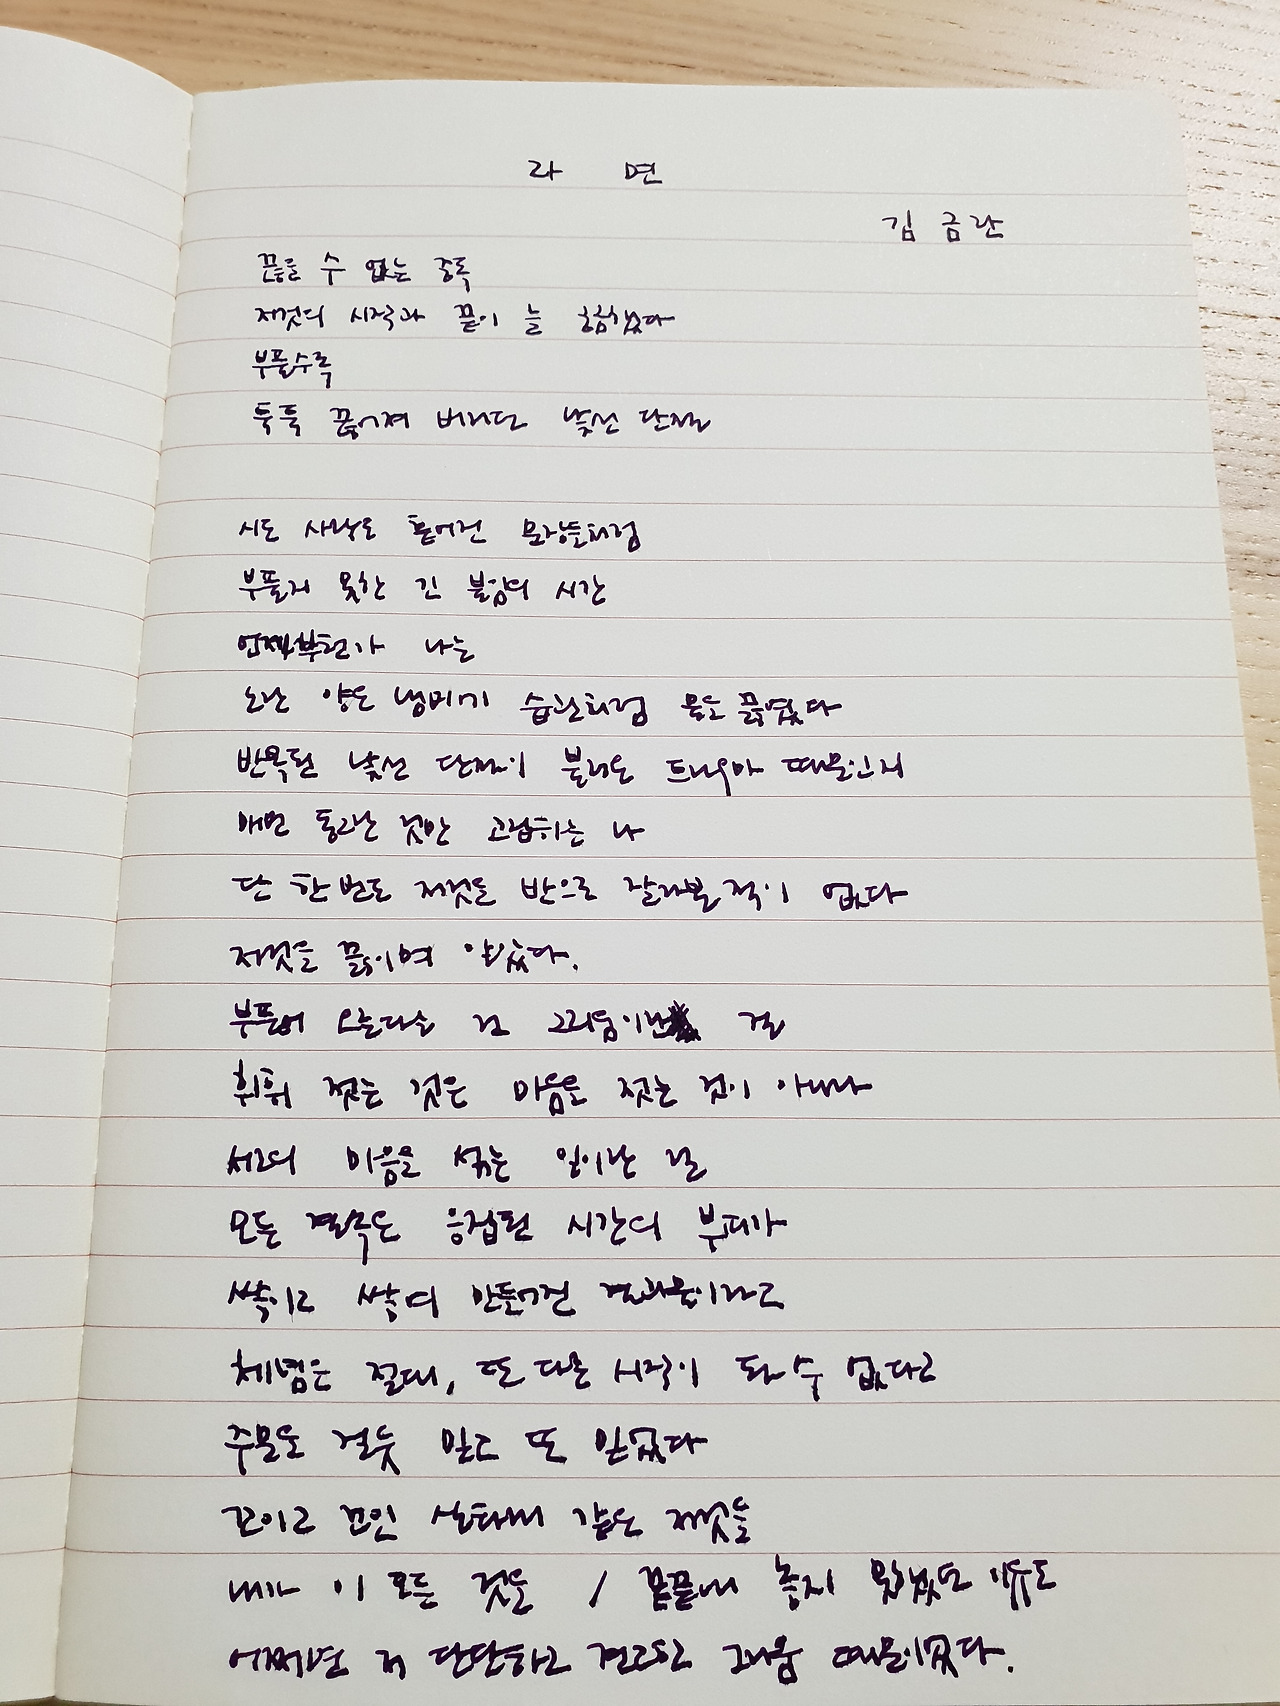 라 면
김 금란
끊을 수 없는 중독
저것의 시작과 끝이 늘 궁금했다
부풀수록
툭툭 끊어져 버리던 낯선 단절
시도 사랑도 흩어진 문장들처럼
부풀지 못한 긴 불임의 시간
언제부턴가 나는
노란 양은 냄비가 습관처럼 물을 끓였다
반복된 낯선 단절이 불러온 트라우마 때문인지
매번 동그란 것만 고집하는 나
단 한 번도 저것을 반으로 갈라본 적이 없다
저것을 끓이며 알았다.
부풀어 오른다는 건 그리움이란 걸
휘휘 젓는 것은 마음을 젓는 것이 아니라
서로의 마음을 섞는 일이란 걸
모든 결속은 응집된 시간의 부피가
쌓이고 쌓여 만들어진 결과물이라고
체념은 절대, 또 다른 시작이 될 수 없다고
주문을 걸듯 믿고 또 믿었다
꼬이고 꼬인 실타래 같은 저것들
내가 이 모든 것을 / 끝끝내 놓지 못했던 이유도
어쩌면 저 단단하고 견고한 그리움 때문이었다.